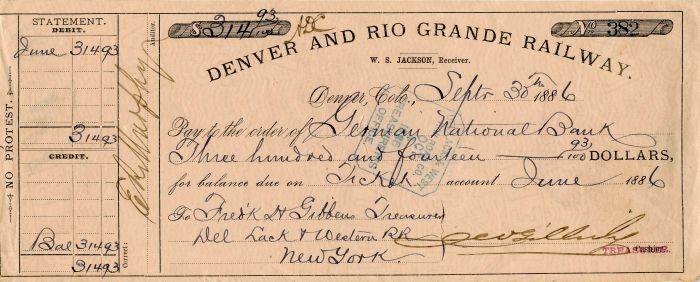 STATEMENT.
DEBIT.
June 314 93
314 93
CREDIT.
Bal 314 93
314 93
NO PROTEST.
Auditor.
Correct:
E R Murphy
$ 314 93/100
No. 382
DENVER AND RIO GRANDE RAILWAY.
W. S. JACKSON, Receiver.
Denver, Colo., Septr 30th 1886
Pay to the order of German National Bank
Three hundred and fourteen 93/100 DOLLARS,
for balance due on Ticket account June 1886
To Fredk H Gibbens Treasurer
Del Lack & Western RR
New York.
TREASURER.
Cashier.